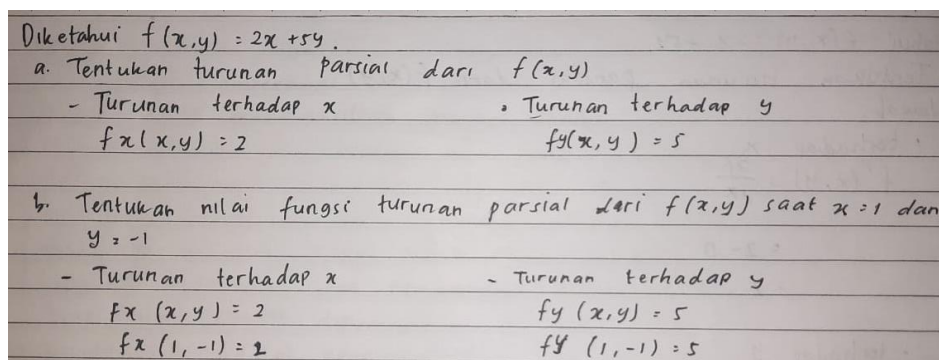 Diketahui f(x,y) = 2x + 5y.
a. Tentukan turunan parsial dari f(x,y)
- Turunan terhadap x • Turunan terhadap y
fx(x,y) = 2 fy(x,y) = 5
b. Tentukan nilai fungsi turunan parsial dari f(x,y) saat x = 1 dan
y = -1
- Turunan terhadap x - Turunan terhadap y
fx (x,y) = 2 fy (x,y) = 5
fx (1,-1) = 2 fy (1,-1) = 5